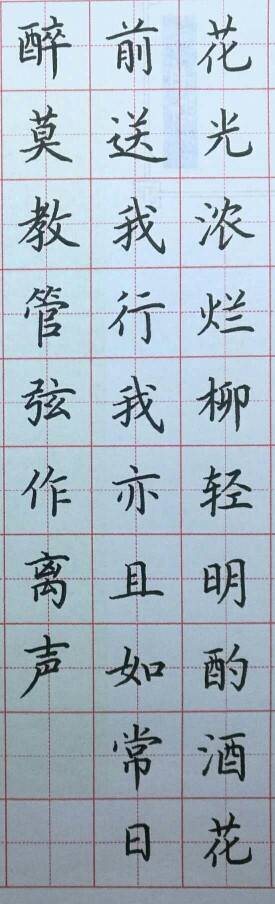 花光浓烂柳轻明酌酒花
前送我行我亦且如常日
醉莫教管弦作离声